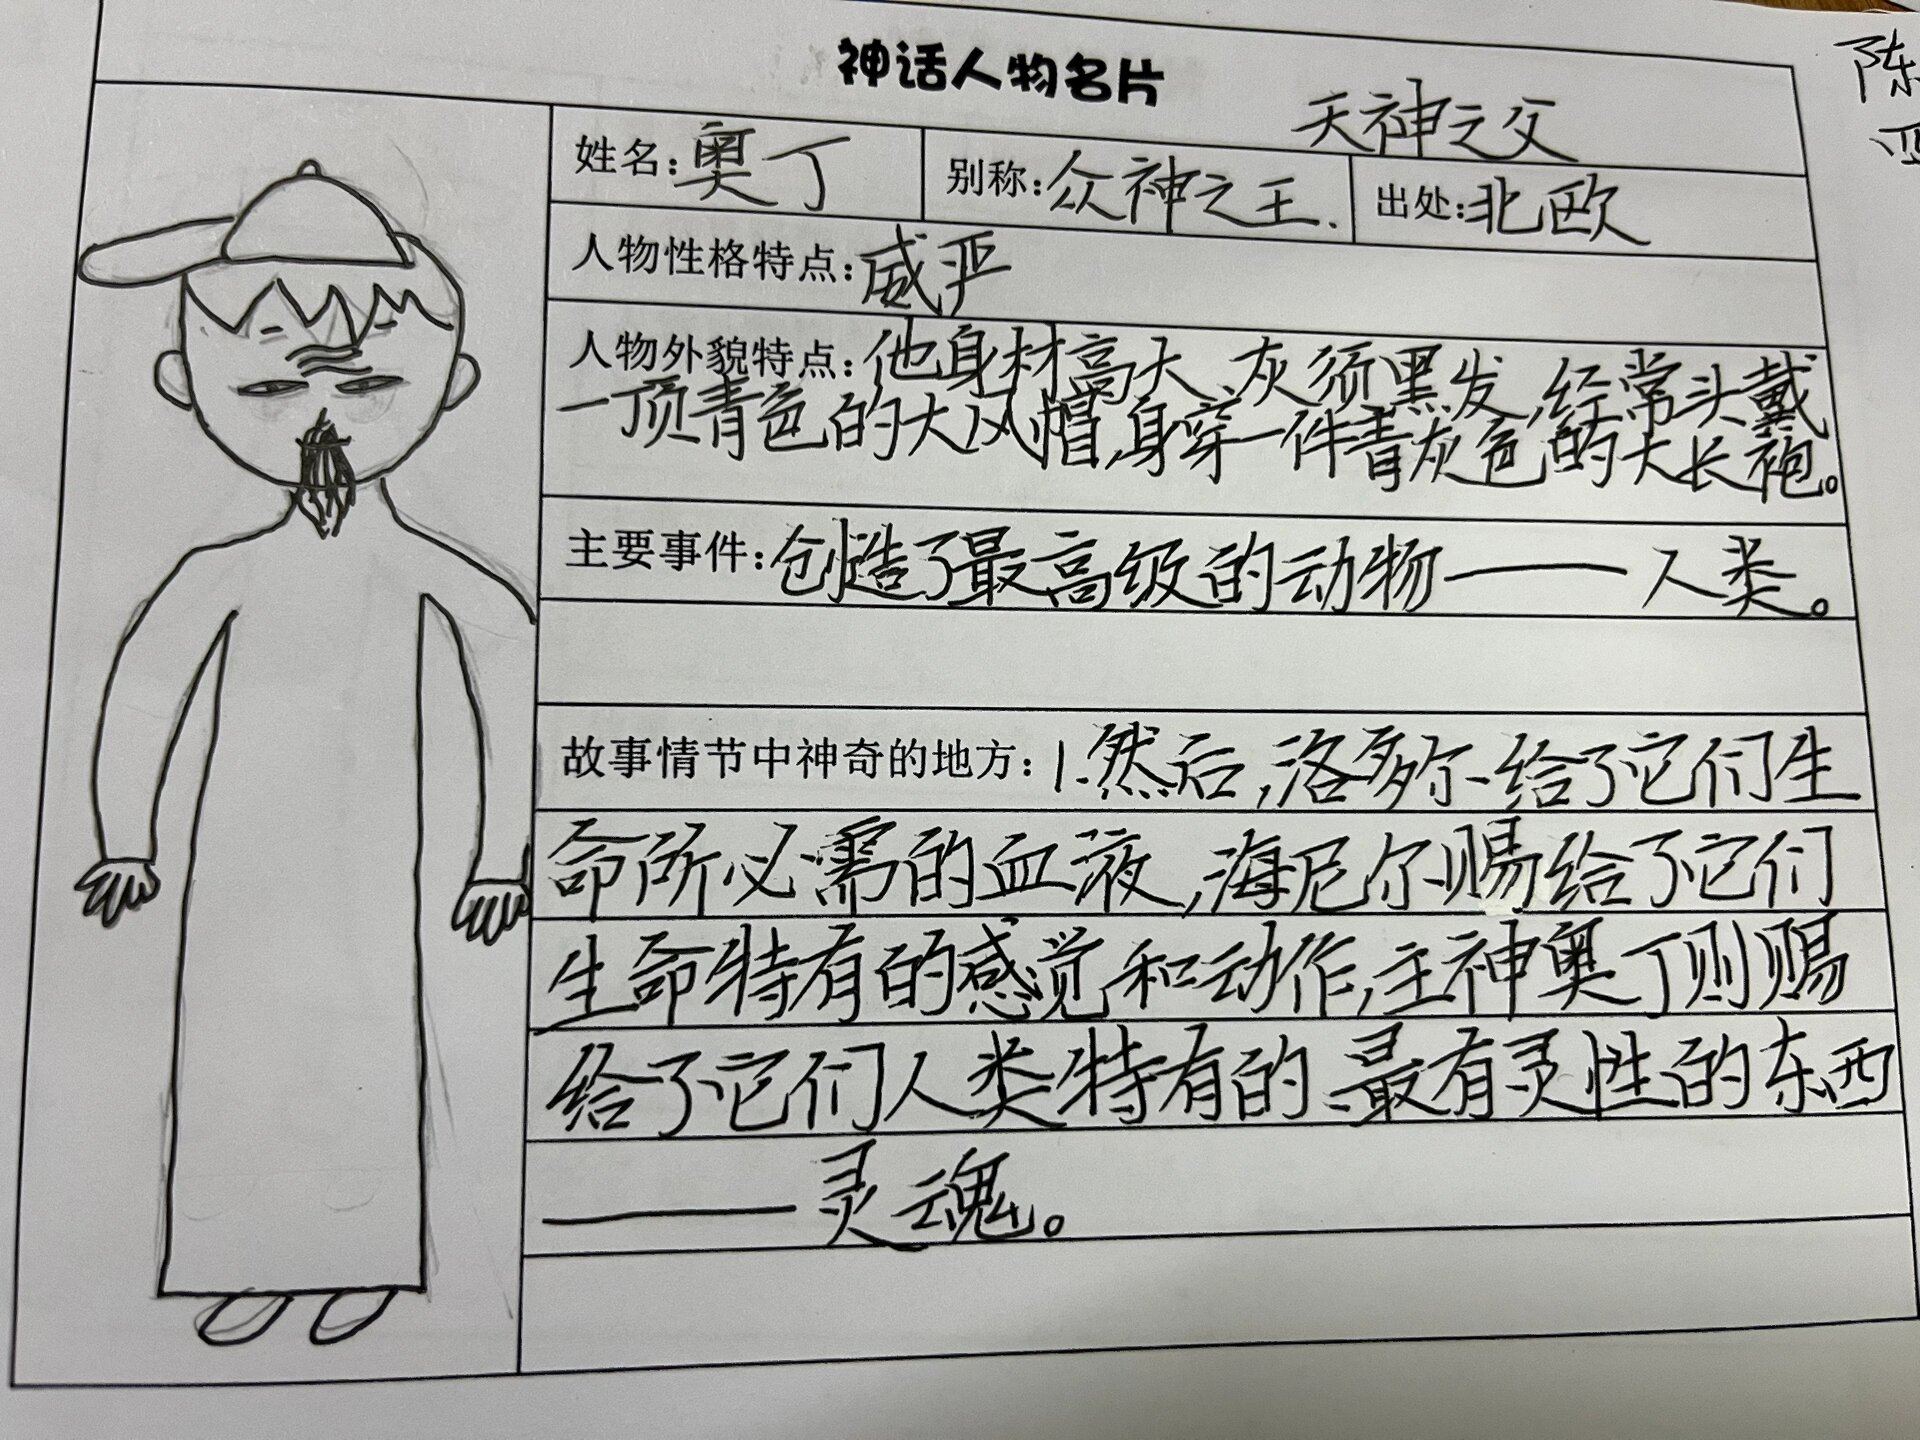 神话人物名片
陈
天神之父
姓名:奥丁 别称:众神之王. 出处:北欧
人物性格特点:威严
人物外貌特点:他身材高大、灰须黑发,经常头戴
一顶青色的大风帽,身穿一件青灰色的大长袍。
主要事件:创造了最高级的动物——人类。
故事情节中神奇的地方:1.然后,洛多尔给了它们生
命所必需的血液,海尼尔赐给了它们
生命特有的感觉和动作,主神奥丁则赐
给了它们人类特有的、最有灵性的东西
——灵魂。